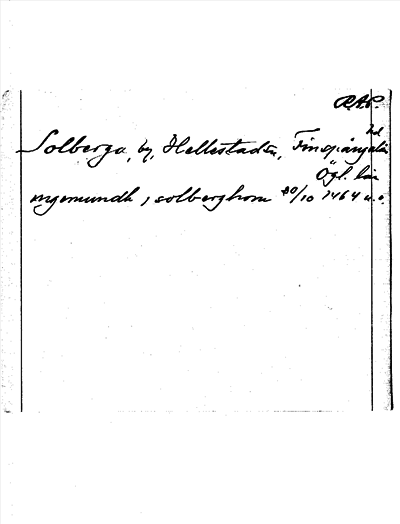 RAP.
Solberga, by, Hellestads sn, Finspångaläns hd
Ögl. län
ingemundh j solberghom 30/10 1464 u.o.